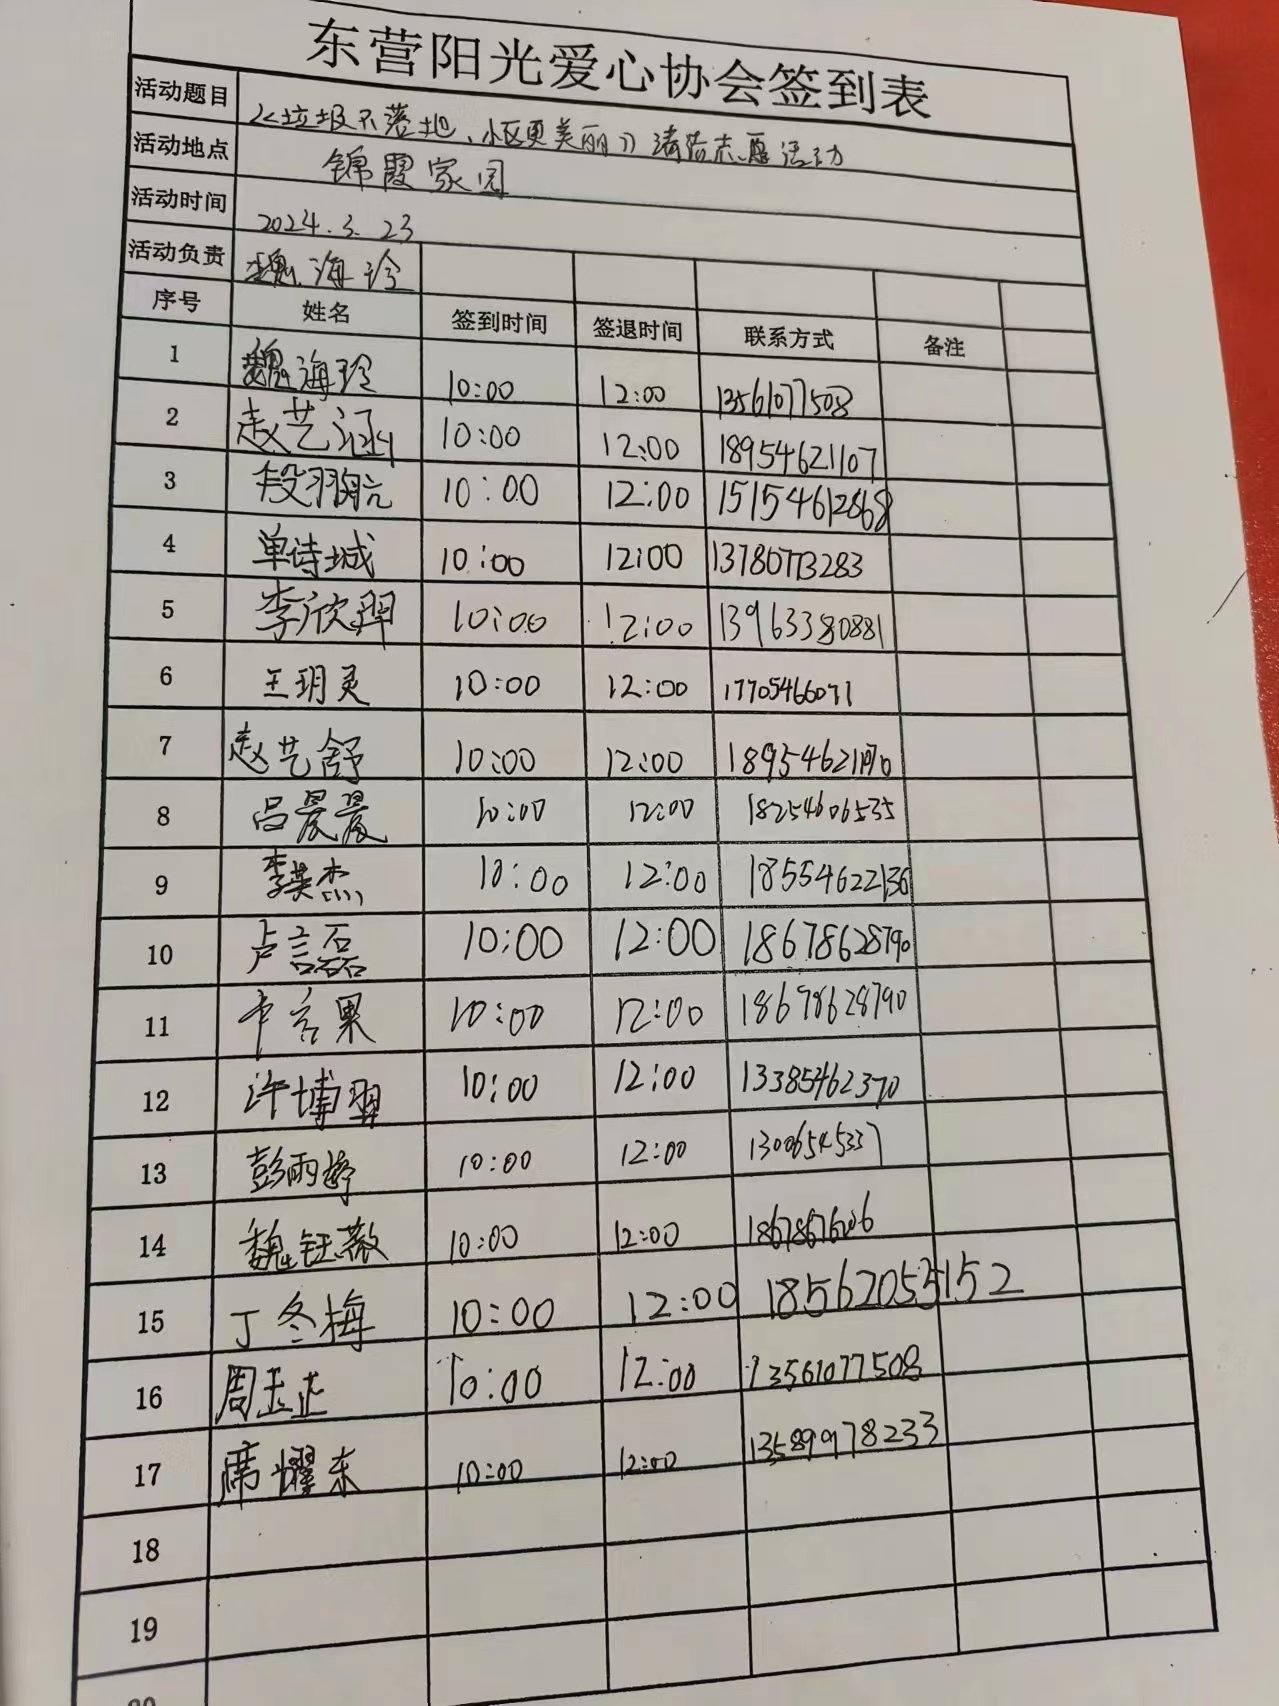 东营阳光爱心协会签到表
活动题目 《垃圾不落地、小区更美丽》清洁志愿活动
活动地点 锦霞家园
活动时间 2024.3.23
活动负责 魏海玲
序号 姓名 签到时间 签退时间 联系方式 备注
1 魏海玲 10:00 12:00 13561077508
2 赵艺涵 10:00 12:00 18954621107
3 段翔元 10:00 12:00 15154612868
4 单诗城 10:00 12:00 13780773283
5 李欣羿 10:00 12:00 13963380881
6 王玥灵 10:00 12:00 17705466071
7 赵艺舒 10:00 12:00
8 吕晨晨 10:00 12:00 18254606535
9 李英杰 10:00 12:00 18554622136
10 卢言磊 10:00 12:00 18678628790
11 卢言果 10:00 12:00 18678628790
12 许博翌 10:00 12:00 13385462370
13 彭雨婷 10:00 12:00 13006545337
14 魏钰薇 10:00 12:00
15 丁冬梅 10:00 12:00 18562053152
16 周玉正 10:00 12:00 13561077508
17 席耀东 10:00 12:00 13589978233
18
19